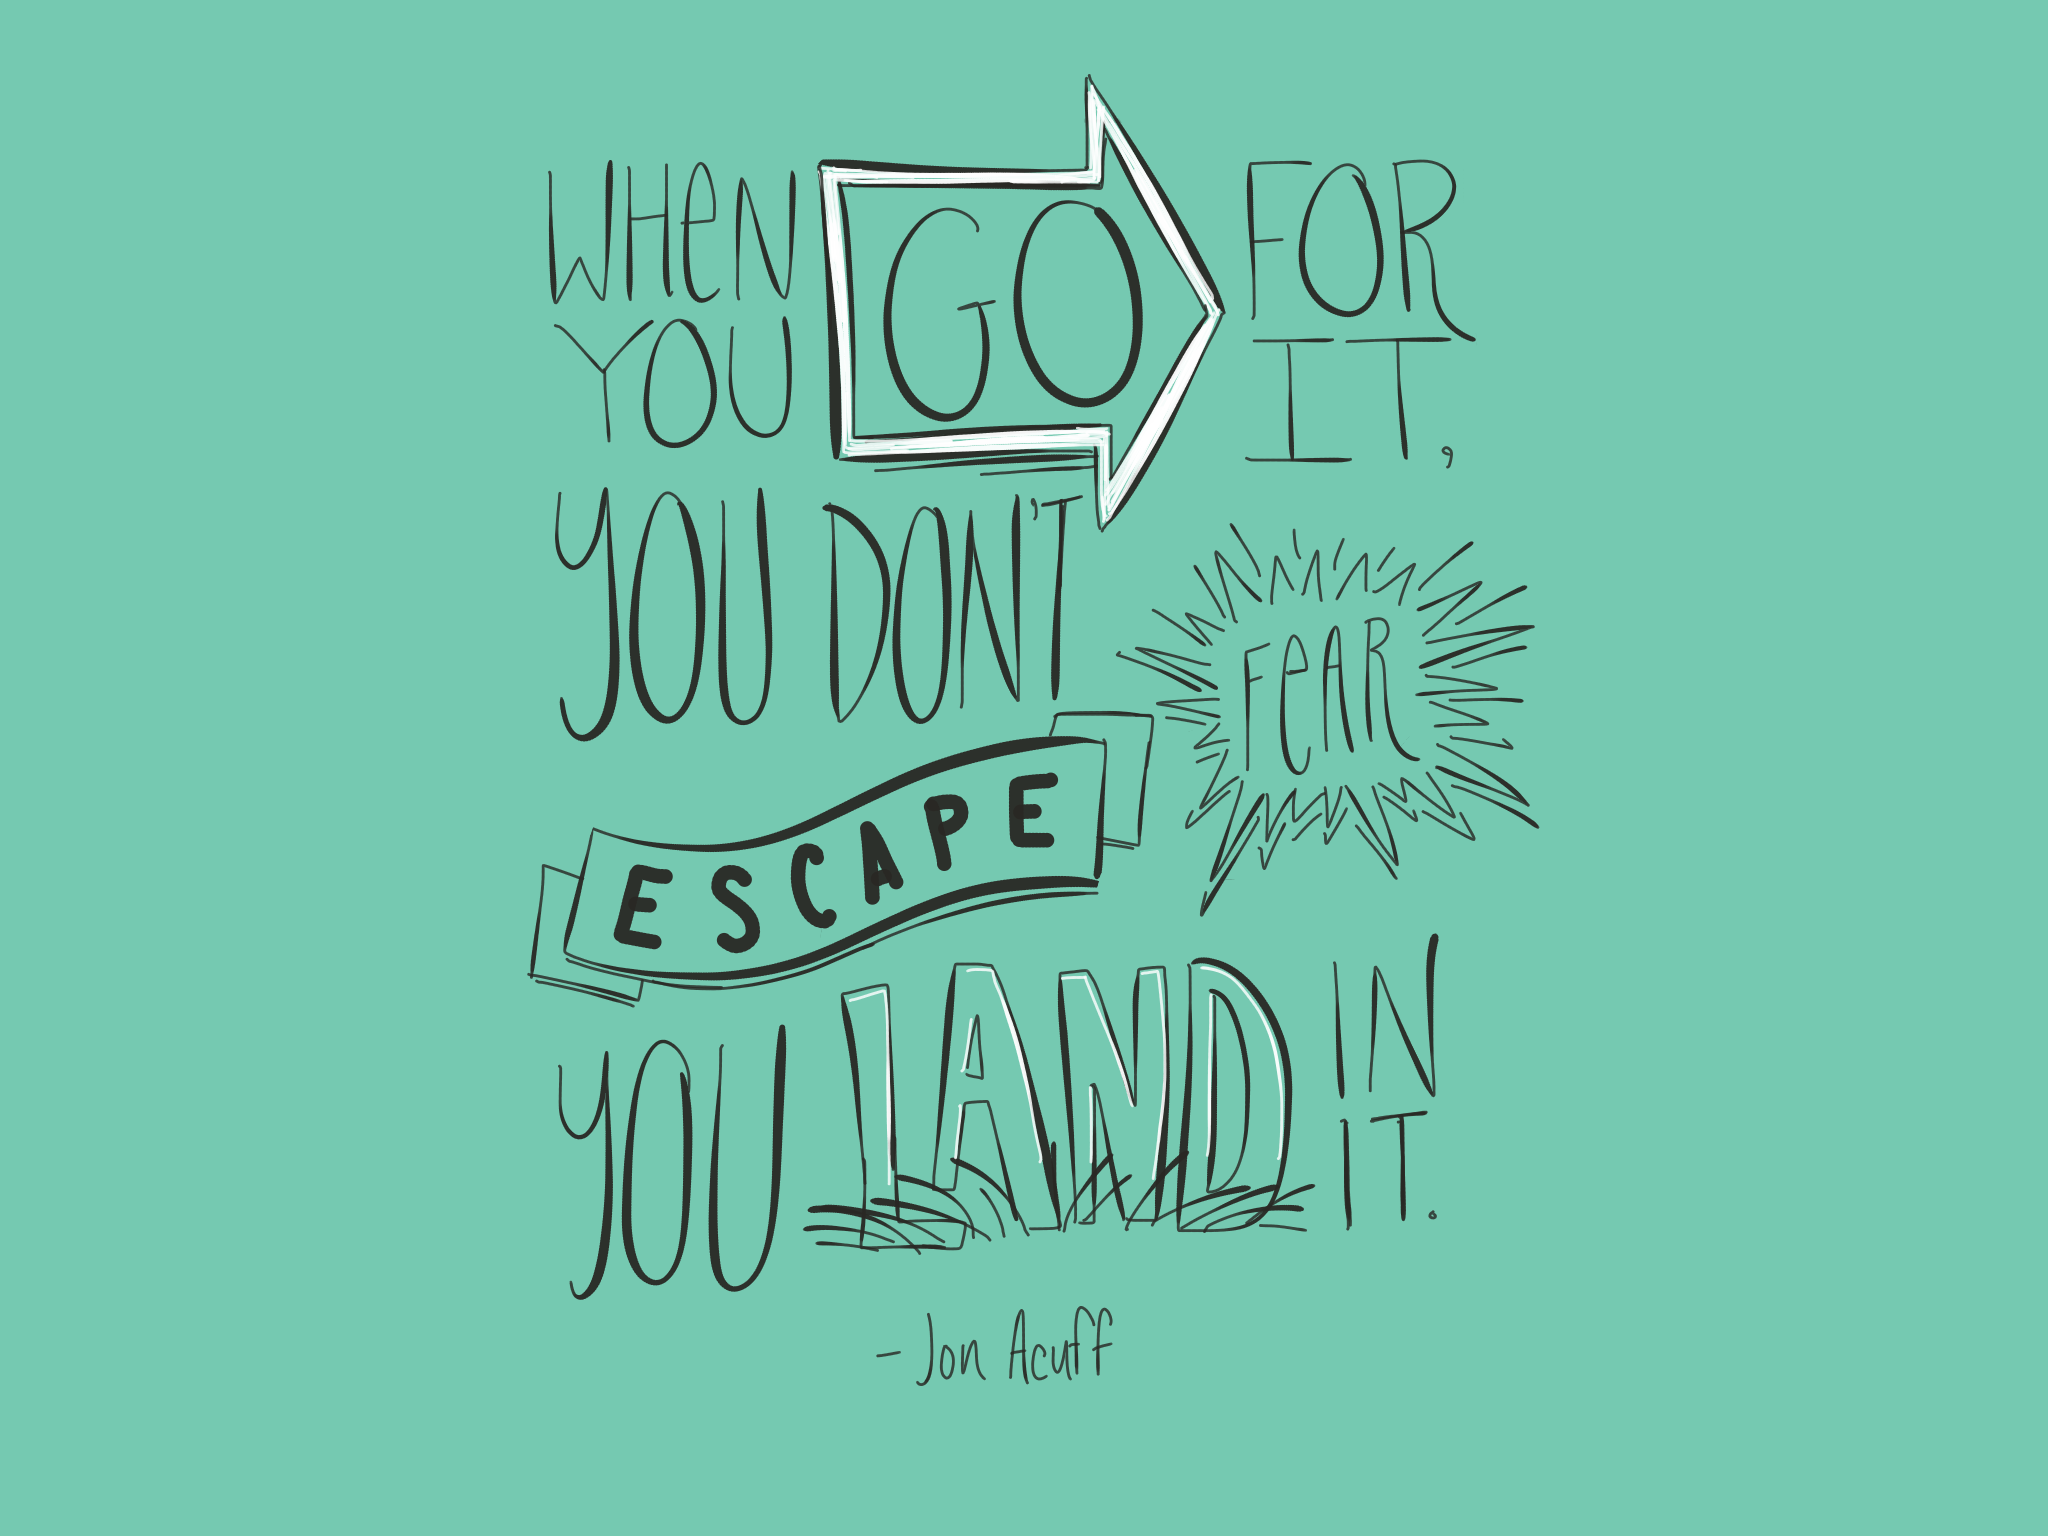 WHeN GO FOR
YOU IT,
YOU DON'T
ESCAPE FeAR
YOU LAND IN
IT.
- Jon Acuff